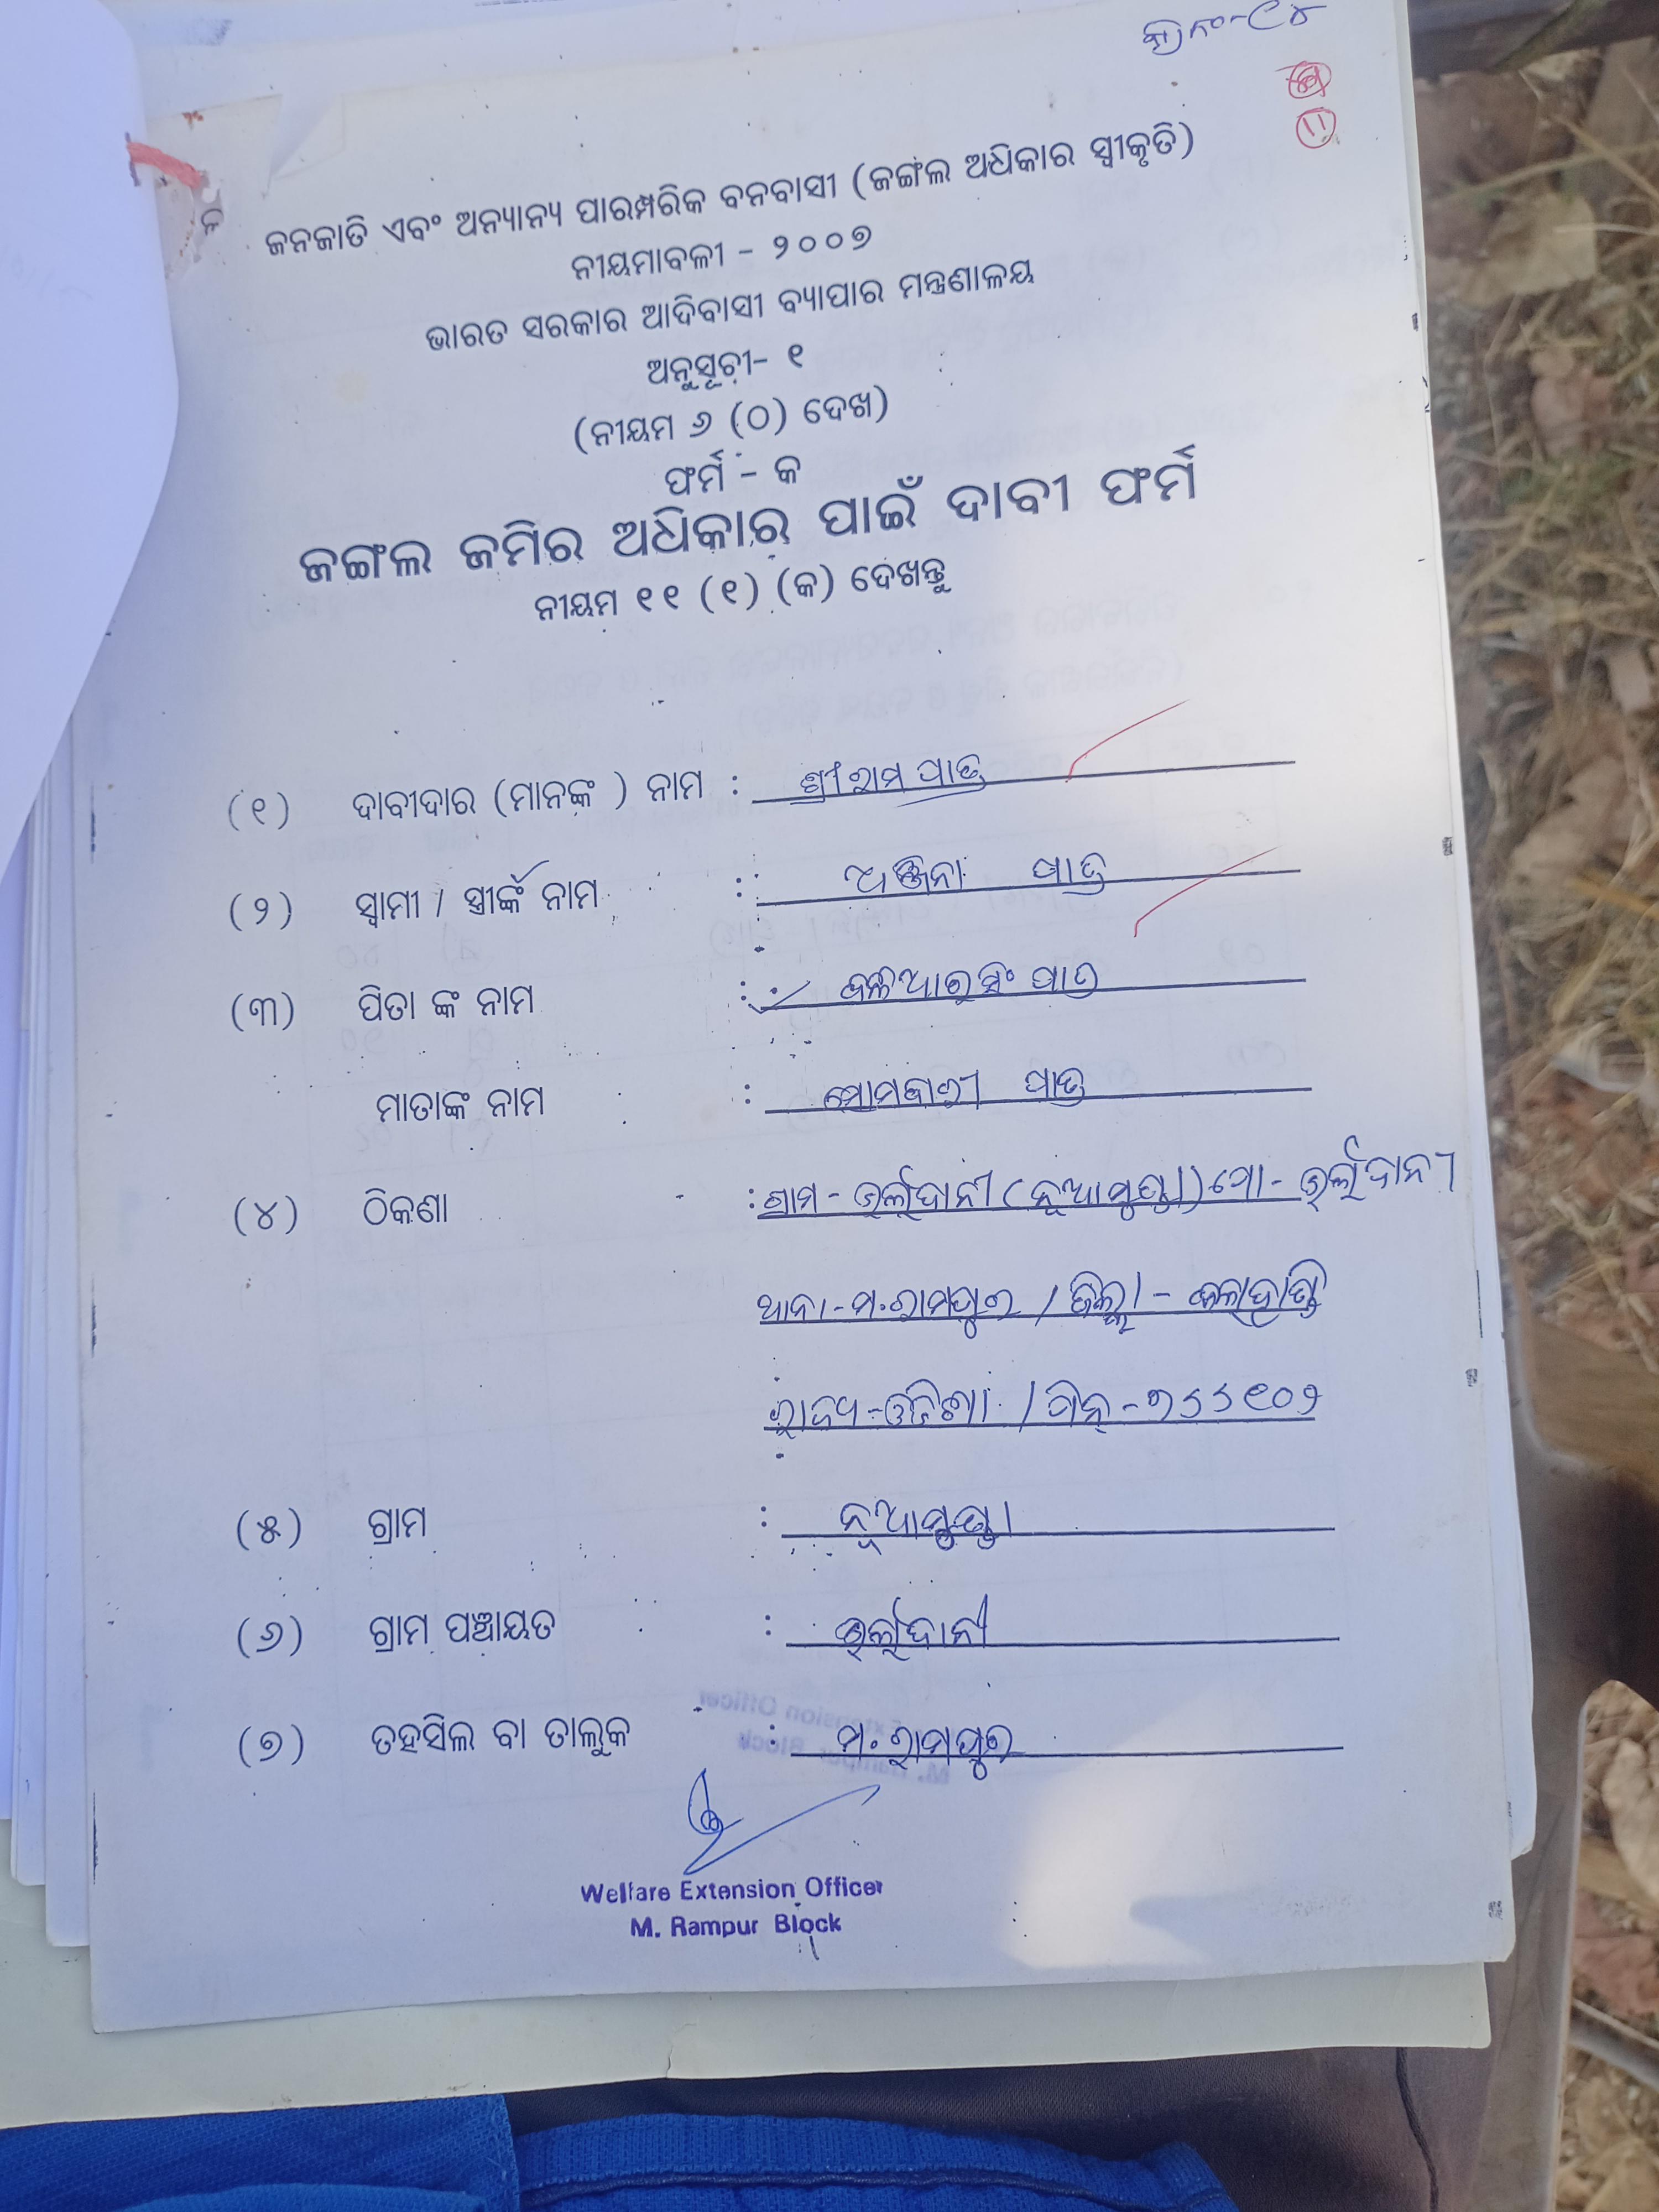 କ୍ର.ନଂ-୯୪
୧୧
ଜନଜାତି ଏବଂ ଅନ୍ୟାନ୍ୟ ପାରମ୍ପରିକ ବନବାସୀ (ଜଙ୍ଗଲ ଅଧିକାର ସ୍ୱୀକୃତି)
ନୀୟମାବଳୀ - ୨୦୦୭
ଭାରତ ସରକାର ଆଦିବାସୀ ବ୍ୟାପାର ମନ୍ତ୍ରଣାଳୟ
ଅନୁସୂଚୀ- ୧
(ନୀୟମ ୬ (ଠ) ଦେଖ)
ଫର୍ମ - କ
ଜଙ୍ଗଲ ଜମିର ଅଧିକାର ପାଇଁ ଦାବୀ ଫର୍ମ
ନୀୟମ ୧୧ (୧) (କ) ଦେଖନ୍ତୁ
(୧) ଦାବୀଦାର (ମାନଙ୍କ ) ନାମ : ଶ୍ରୀରାମ ପାତ୍ର
(୨) ସ୍ୱାମୀ / ସ୍ତ୍ରୀଙ୍କ ନାମ : ଅଞ୍ଜିନା ପାତ୍ର
(୩) ପିତା ଙ୍କ ନାମ : ବଳିଆରସିଂ ପାତ୍ର
ମାତାଙ୍କ ନାମ : ସୋମବାରୀ ପାତ୍ର
(୪) ଠିକଣା : ଗ୍ରାମ - ଉର୍ଲାଦାନୀ (ନୂଆମୁଣ୍ଡା) ପୋ - ଉର୍ଲାଦାନୀ
ଥାନା - ମ.ରାମପୁର / ଜିଲ୍ଲା - କଳାହାଣ୍ଡି
ରାଜ୍ୟ - ଓଡିଶା / ପିନ୍ - ୭୬୬୧୦୨
(୫) ଗ୍ରାମ : ନୂଆମୁଣ୍ଡା
(୬) ଗ୍ରାମ ପଞ୍ଚାୟତ : ଉର୍ଲାଦାନୀ
(୭) ତହସିଲ ବା ତାଲୁକ : ମ.ରାମପୁର
Welfare Extension Officer
M. Rampur Block